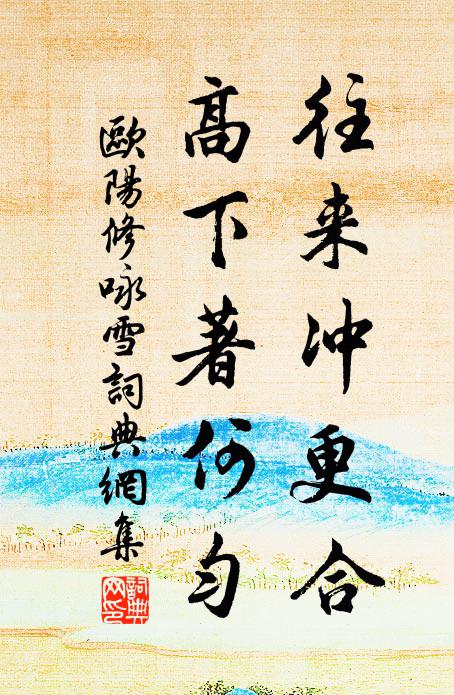 往来冲更合
高下著何匀
歐陽修咏雪詞典網集
詞典网印